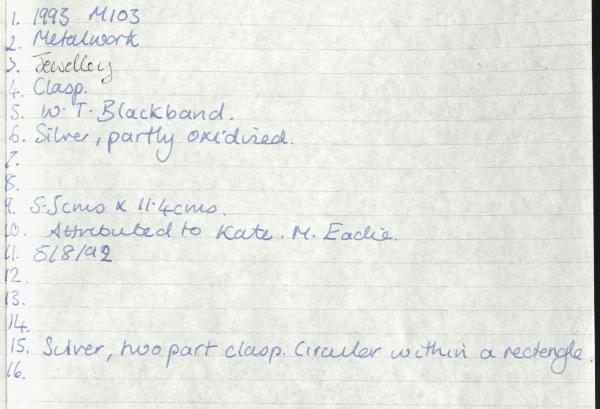 1. 1993 M103
2. Metalwork
3. Jewellery
4. Clasp.
5. W. T. Blackband.
6. Silver, partly oxidized.
7.
8.
9. 5.5cms x 11.4cms.
10. Attributed to Kate. M. Eadie.
11. 5/8/92
12.
13.
14.
15. Silver, two part clasp. Circular within a rectangle.
16.